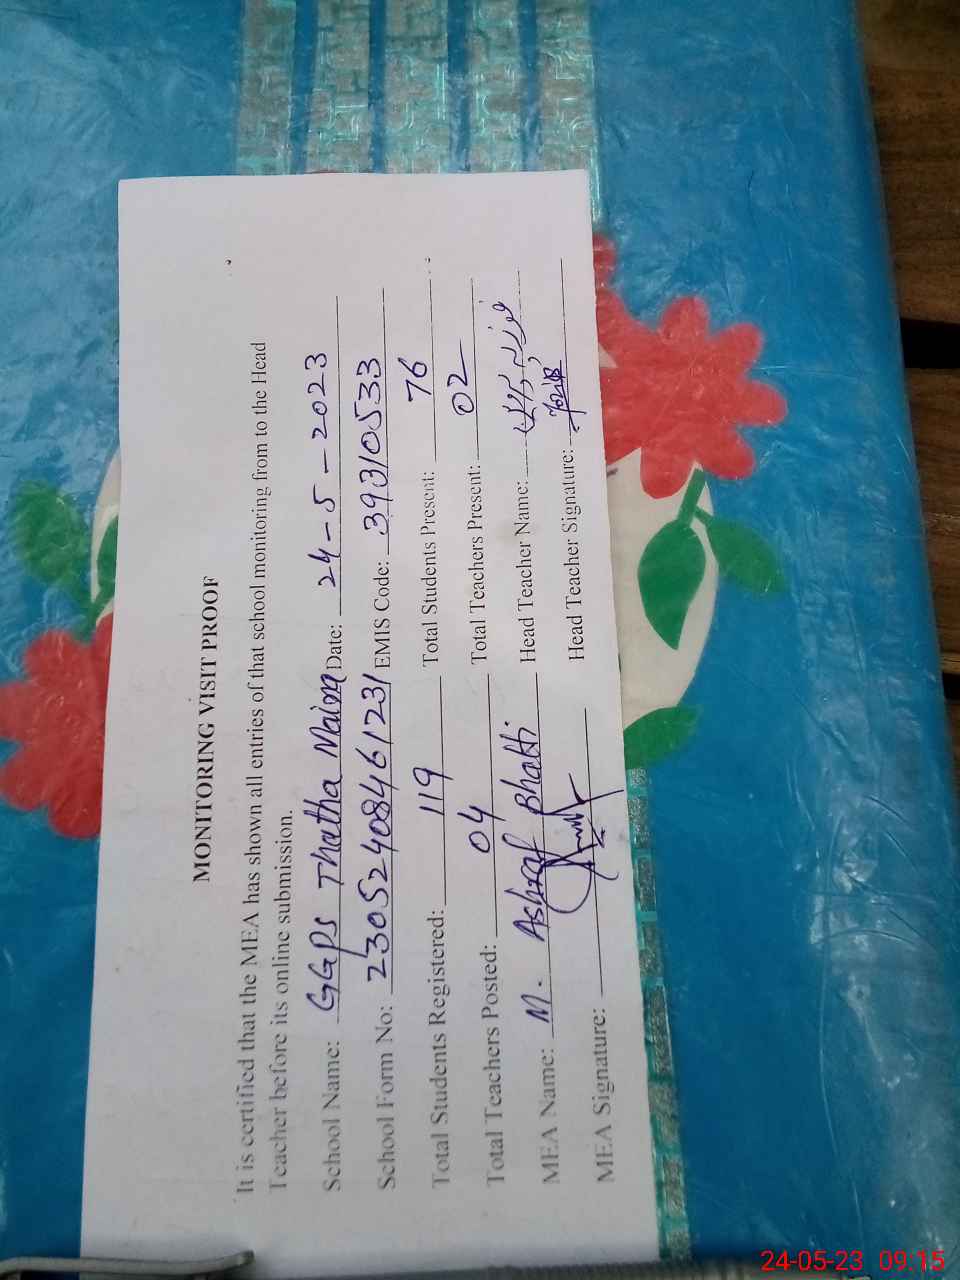 MONITORING VISIT PROOF
It is certified that the MEA has shown all entries of that school monitoring from to the Head
Teacher before its online submission.
School Name: GGPS Thatha Maina Date: 24-5-2023
School Form No: 23052408461231 EMIS Code: 39310533
Total Students Registered: 119 Total Students Present: 76
Total Teachers Posted: 04 Total Teachers Present: 02
MEA Name: M. Ashraf Bhatti Head Teacher Name:
MEA Signature: Head Teacher Signature:
24-05-23 09:15